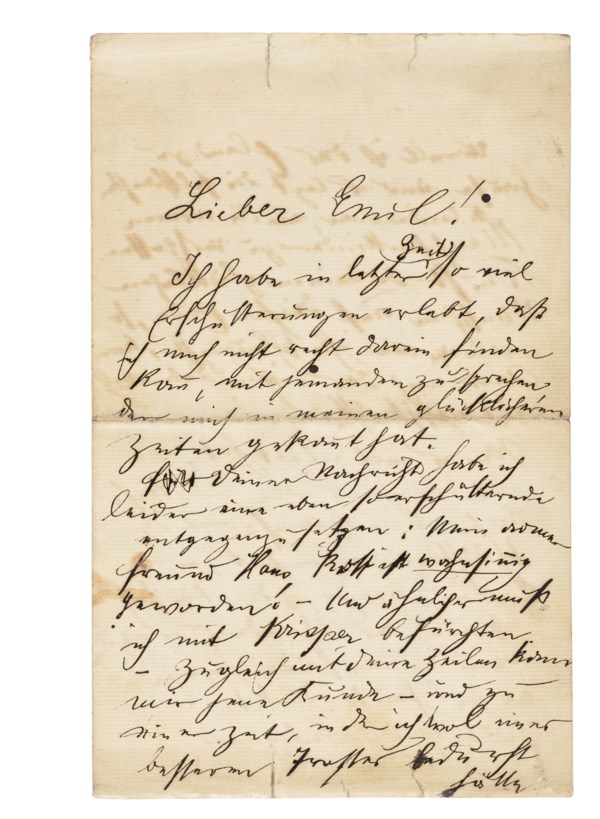 Lieber Emil!
Zeit
Ich habe in letzter so viel
Erschütterungen erlebt, daß
ich mich nicht recht darein finden
kan̄, mit jemandem zu sprechen
der mich in meinen glücklicheren
Zeiten gekan̄t hat.
Deiner Nachricht habe ich
leider eine eben so erschütternde
entgegenzusetzen: Mein armer
Freund Hans Rott ist wahnsin̄ig
geworden! – Und ähnliches muß
ich mit Krisper befürchten
– Zugleich mit deinen Zeilen kam
mir jene Kunde – und zu
einer Zeit, in der ich wol eines
besseren Trostes bedurft
hätte